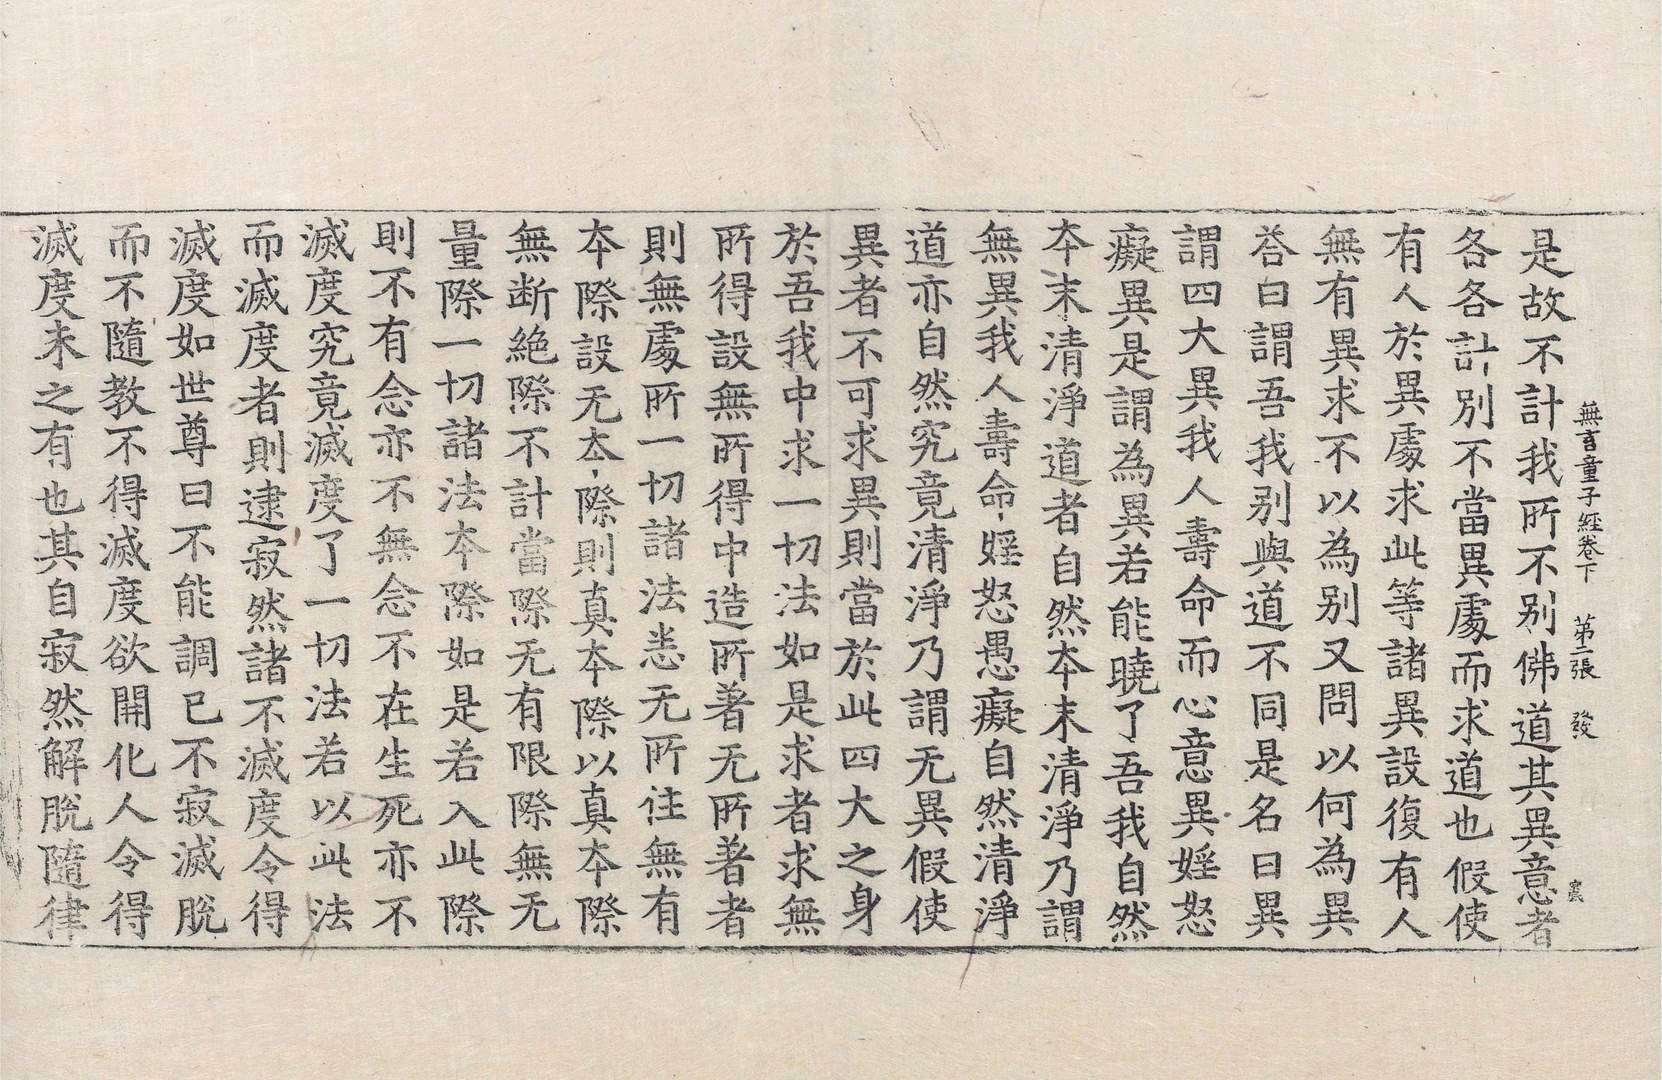 無言童子經卷下　第二張　發
是故不計我所不别佛道其異意者
各各計別不當異處而求道也假使
有人於異處求此等諸異設復有人
無有異求不以為别又問以何為異
荅曰謂吾我别與道不同是名曰異
謂四大異我人壽命而心意異婬怒
癡異是謂為異若能曉了吾我自然
夲末清淨道者自然夲末清淨乃謂
無異我人壽命婬怒愚癡自然清淨
道亦自然究竟清淨乃謂无異假使
異者不可求異則當於此四大之身
於吾我中求一切法如是求者求無
所得設無所得中造所著无所著者
則無處所一切諸法悉无所住無有
夲際設无夲際則真夲際以真夲際
無断絶際不計當際无有限際無无
量際一切諸法夲際如是若入此際
則不有念亦不無念不在生死亦不
滅度究竟滅度了一切法若以此法
而滅度者則逮寂然諸不滅度令得
滅度如世尊曰不能調已不寂滅脫
而不隨教不得滅度欲開化人令得
滅度未之有也其自寂然解脫隨律